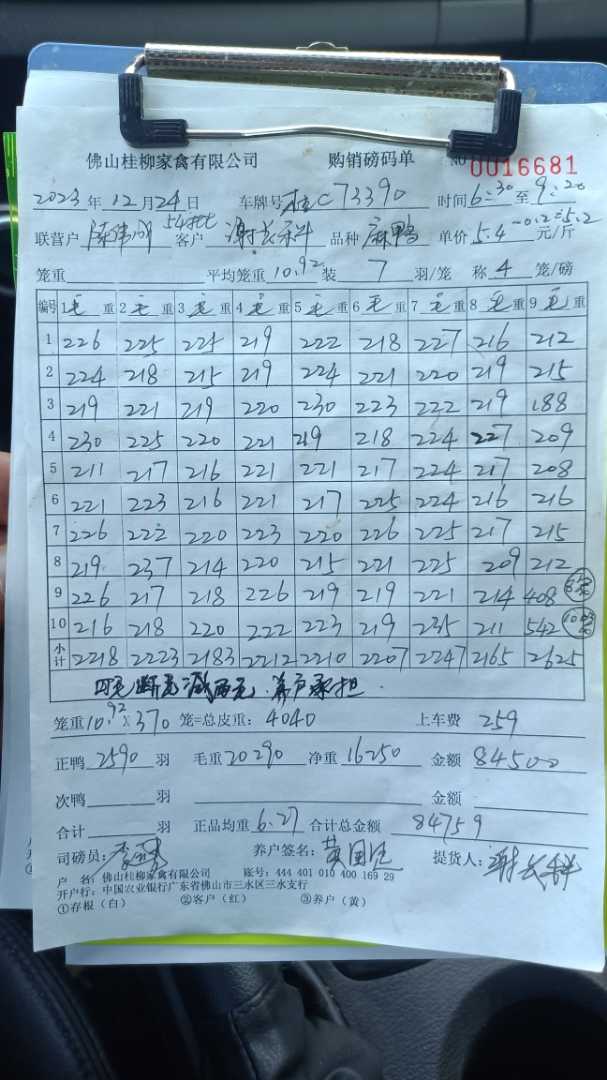 佛山桂柳家禽有限公司 购销磅码单 No 0016681
2023年12月24日 车牌号桂C73390 时间6:30至9:20
联营户 54批 客户 品种麻鸭 单价5.4-0.2=5.2元/斤
笼重 平均笼重10.92装7羽/笼 称4笼/磅
编号 1毛重 2毛重 3毛重 4毛重 5毛重 6毛重 7毛重 8毛重 9毛重
1 226 225 225 219 222 218 227 216 212
2 224 218 215 219 224 221 220 219 215
3 219 221 219 220 230 223 222 219 188
4 230 225 220 221 219 218 224 227 209
5 211 217 216 221 221 217 224 217 208
6 221 223 216 221 217 225 224 216 216
7 226 222 220 223 220 226 225 217 215
8 219 237 214 220 215 221 225 209 212
9 226 217 218 226 219 219 221 214 408
10 216 218 220 222 223 219 235 211 542
小计 2218 2223 2183 2212 2210 2207 2247 2165 2625
断毛减两毛.养户承担.
笼重10.92×370笼=总皮重:4040 上车费259
正鸭2590羽 毛重20290 净重16250 金额84500
次鸭 羽 金额
合计 羽 正品均重6.27 合计总金额84759
司磅员: 养户签名: 提货人:
户 名:佛山桂柳家禽有限公司 账号:444 401 010 400 169 29
开户行:中国农业银行广东省佛山市三水区三水支行
①存根(白) ②客户(红) ③养户(黄)